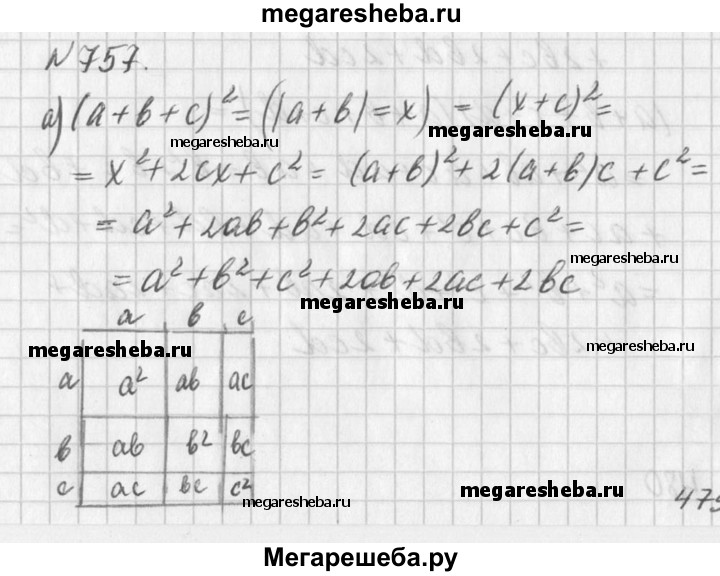 megaresheba.ru
N 757.
а) (a+b+c)² = ((a+b)=x) = (x+c)² =
megaresheba.ru
megaresheba.ru
= x² + 2cx + c² = (a+b)² + 2(a+b)c + c² =
megaresheba.ru
= a² + 2ab + b² + 2ac + 2bc + c² =
megaresheba.ru
= a² + b² + c² + 2ab + 2ac + 2bc
megaresheba.ru
a b c
megaresheba.ru
megaresheba.ru
a a² ab ac
b ab b² bc
c ac bc c²
megaresheba.ru
megaresheba.ru
479
Мегарешеба.ру